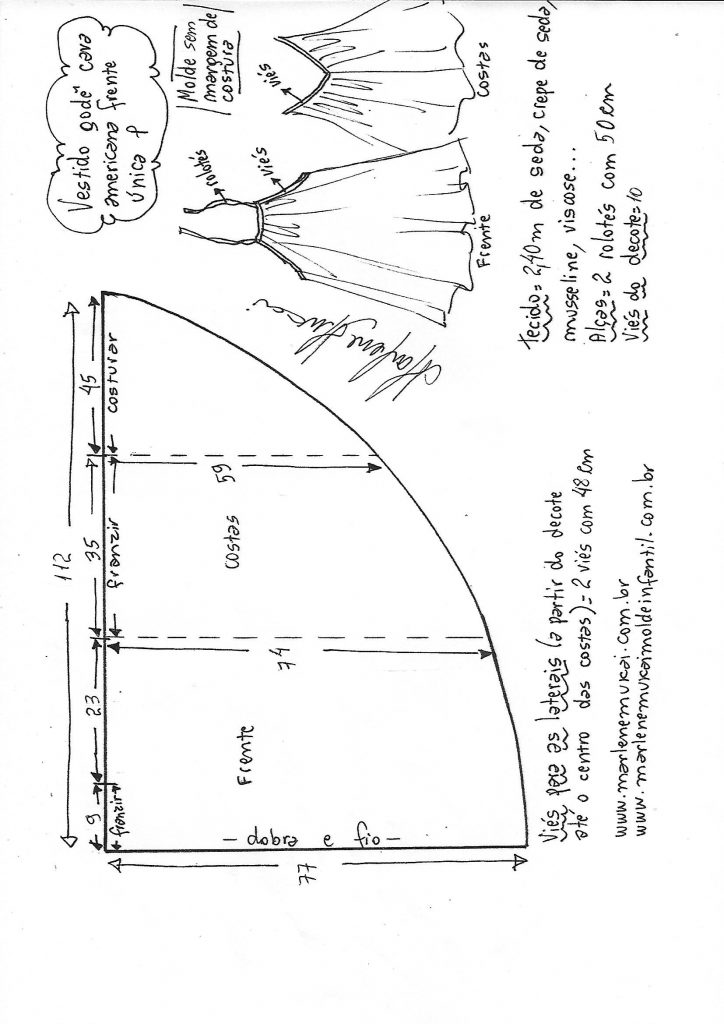 112
9
23
35
45
franzir
franzir
costurar
77
- dobra e fio -
Frente
74
costas
59
Vestido godê cava
americana frente
única P
Molde sem
margem de
costura
rolotés
viés
Frente
viés
costas
Marlene Mukai.
Viés para as laterais (a partir do decote
até o centro das costas) = 2 viés com 48 cm
www.marlenemukai.com.br
www.marlenemukaimoldeinfantil.com.br
Tecido = 2,40m de seda, crepe de seda,
musseline, viscose...
Alças = 2 rolotés com 50 cm
Viés do decote = 10